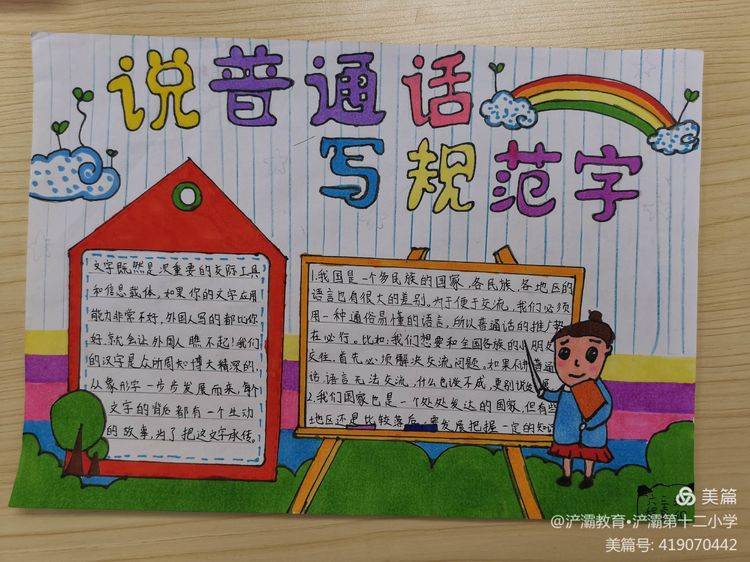 说普通话
写规范字
文字既然是很重要的交际工具
和信息载体,如果你的文字应用
能力非常不好,外国人写的都比你
好,就会让外国人瞧不起!我们
的汉字是众所周知博大精深的,
从象形字一步步发展而来,每个
文字的背后都有一个生动
的故事,为了把这文字承传。
1.我国是一个多民族的国家,各民族,各地区的
语言也有很大的差别,为了便于交流,我们必须
用一种通俗易懂的语言,所以普通话的推广势
在必行。比如:我们想要和全国各族的小朋友
交往,首先必须解决交流问题。如果不讲普通
话语言无法交流,什么也谈不成,更别说发展
2.我们国家也是一个处处发达的国家,但有些
地区还是比较落后,要发展把握一定的知识
美篇
@浐灞教育•浐灞第十二小学
美篇号: 419070442